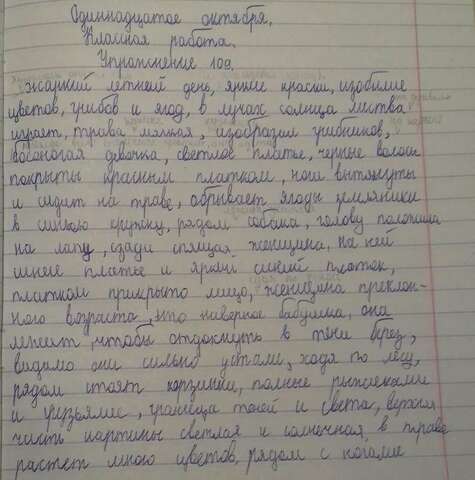 Одиннадцатое октября.
Классная работа.
Упражнение 109.
Жаркий летний день, яркие краски, изобилие
цветов, грибов и ягод, в лучах солнца листва
играет, трава мягкая, изобразил грибников,
босоногая девочка, светлое платье, черные волосы
покрыты красным платком, ноги вытянуты
и сидит на траве, обрывает ягоды земляники
в синюю кружку, рядом собака, голову положила
на лапу, сзади спящая женщина, на ней
синее платье и яркий синий платок,
платком прикрыто лицо, женщина преклон-
ного возраста, это наверное бабушка, она
лежит, чтобы отдохнуть в тени берез,
видимо они сильно устали, ходя по лесу,
рядом стоят корзинки, полные рыжиками
и груздями, граница теней и света, верхняя
часть картины светлая и солнечная, в траве
растет много цветов, рядом с ногами